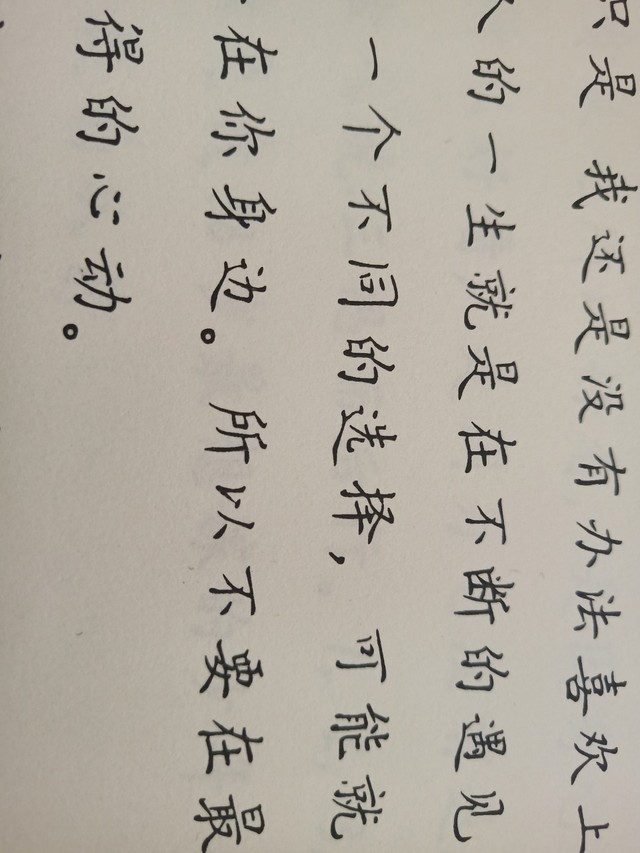 只是 我还是没有办法喜欢上
人的一生就是在不断的遇见
一个不同的选择，可能就
在你身边。所以不要在最
得的心动。